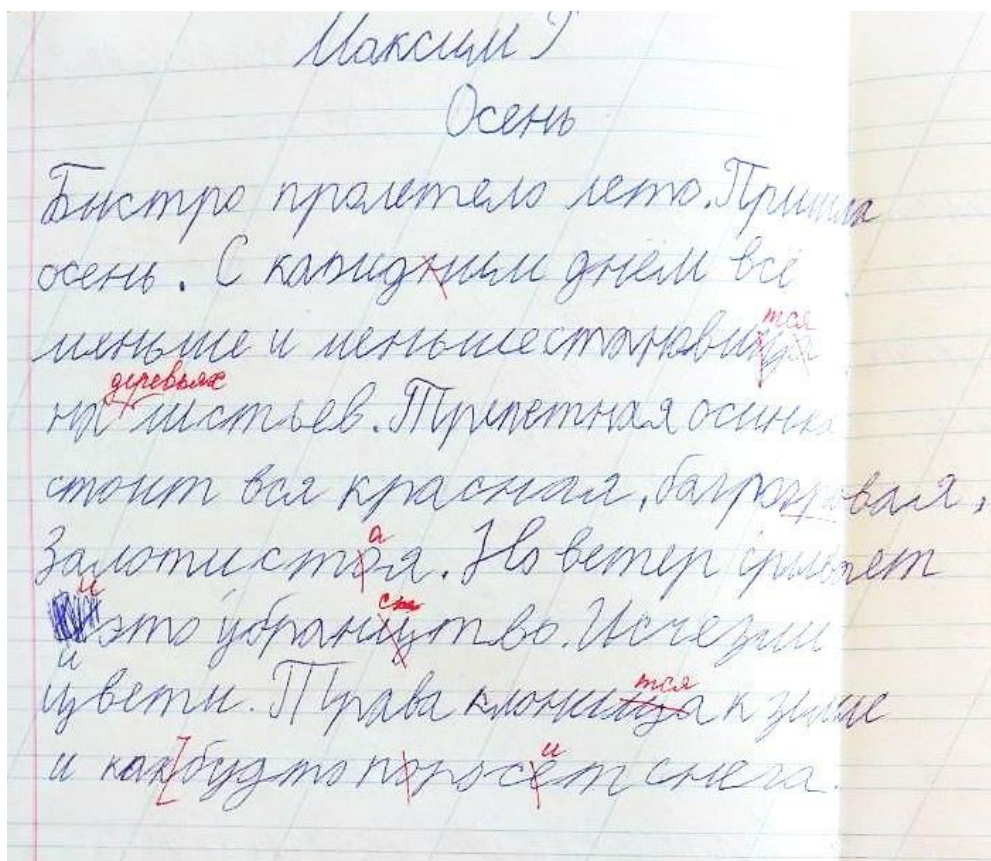 Максим Г
Осень
Быстро пролетело лето. Пришла
осень. С капидним днём всё
тся
меньше и меньше становица
деревьях
на листьев. Трипетная осинка
стоит вся красная, багрогровая,
а
Залотистоя. Но ветер срывает
и
это убранцтво. Исчезли
и
цвети. Трава клоница к земле
тся
и как будто поросет снега.
и